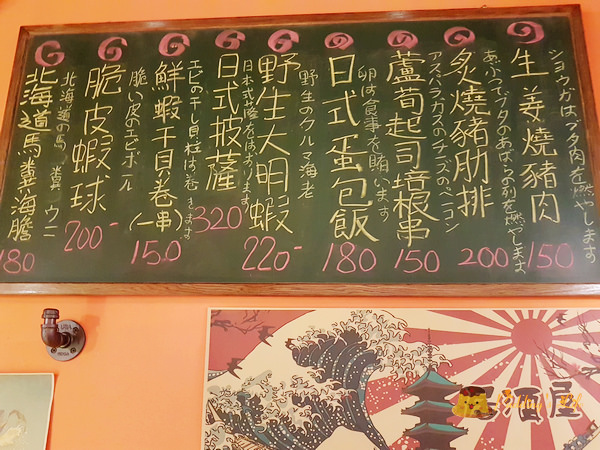 生姜燒豬肉
ショウガはブタ肉を燃やします
150
炙燒豬肋排
あぶってブタのあばらの列を燃やします
200
蘆筍起司培根串
アスパラガスのチーズのベーコン
150
日式蛋包飯
卵は食事を賄います
180
野生大明蝦
野生のクルマ海老
220-
日式披薩
日本式薩をはおります
320
鮮蝦干貝卷(一串)
エビの干し貝柱は卷きます
150
脆皮蝦球
脆い皮のエビボール
200-
北海道馬糞海膽
北海道の馬糞ウニ
180
酒屋